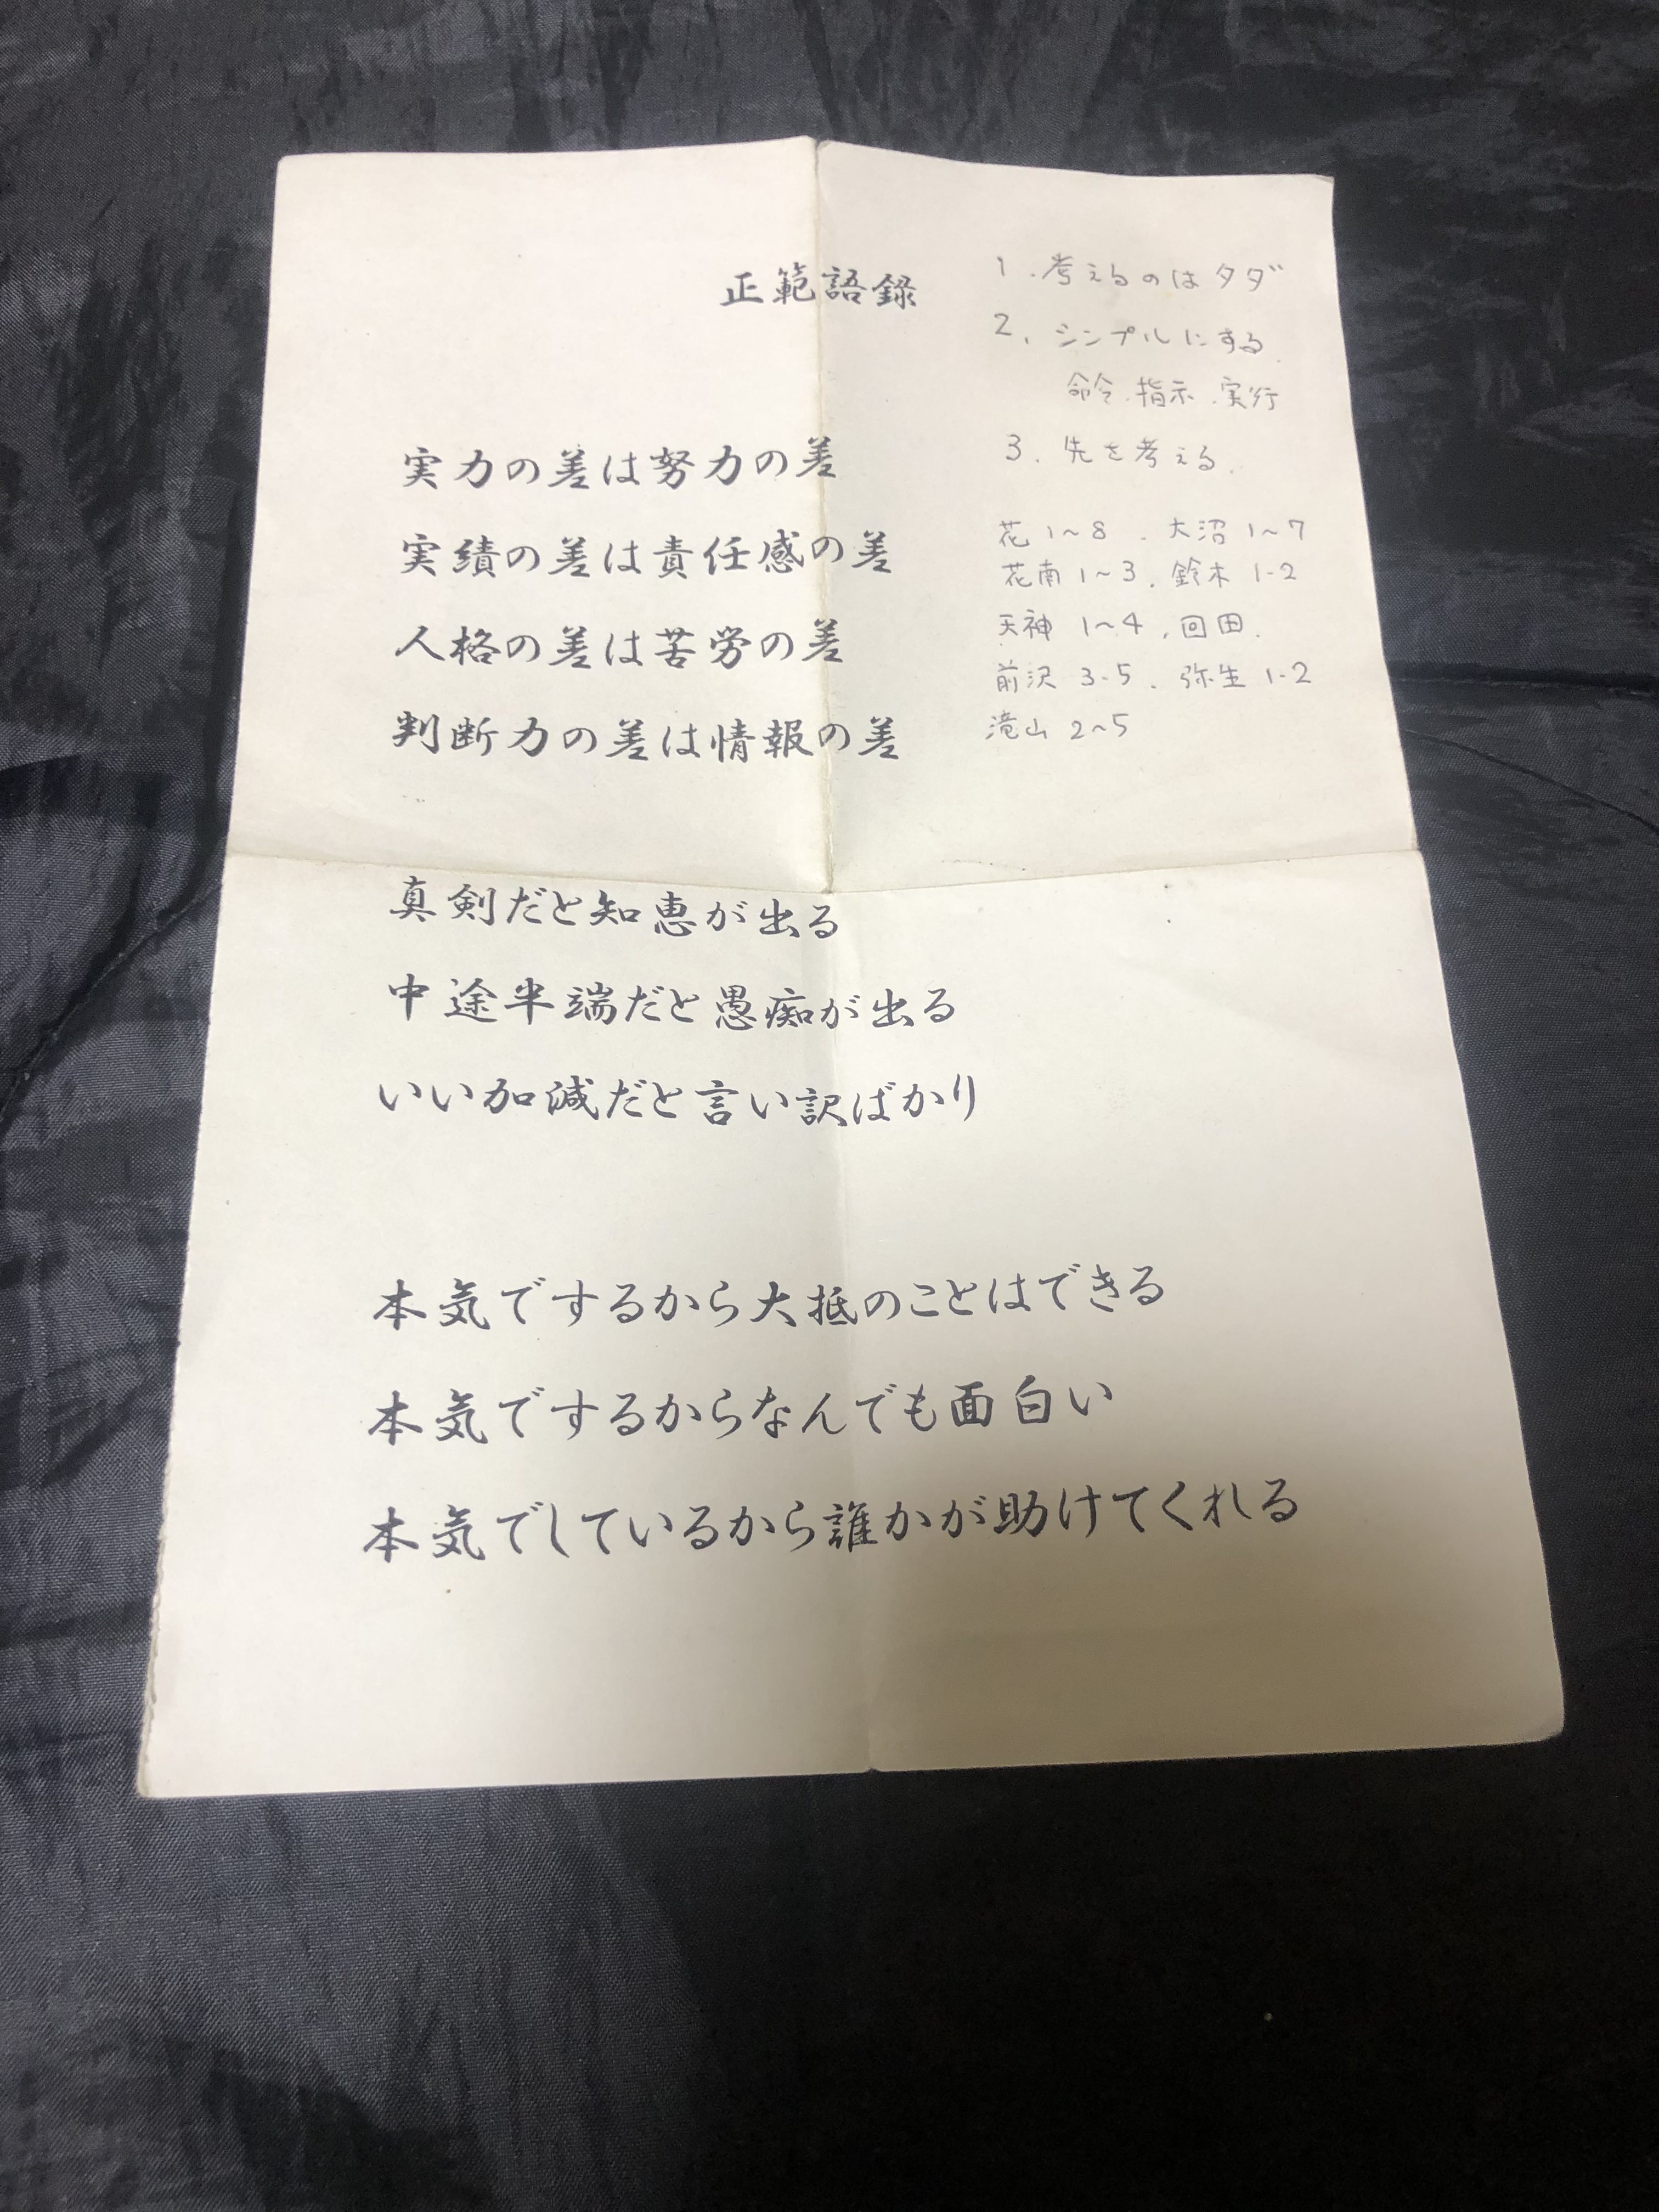 正範語録
実力の差は努力の差
実績の差は責任感の差
人格の差は苦労の差
判断力の差は情報の差
真剣だと知恵が出る
中途半端だと愚痴が出る
いい加減だと言い訳ばかり
本気でするから大抵のことはできる
本気でするからなんでも面白い
本気でしているから誰かが助けてくれる
1.考えるのはタダ
2.シンプルにする.
命令.指示.実行
3.先を考える.
花1~8.大沼1~7
花南1~3.鈴木1-2
天神1~4,回田.
前沢3-5.弥生1-2
滝山2~5